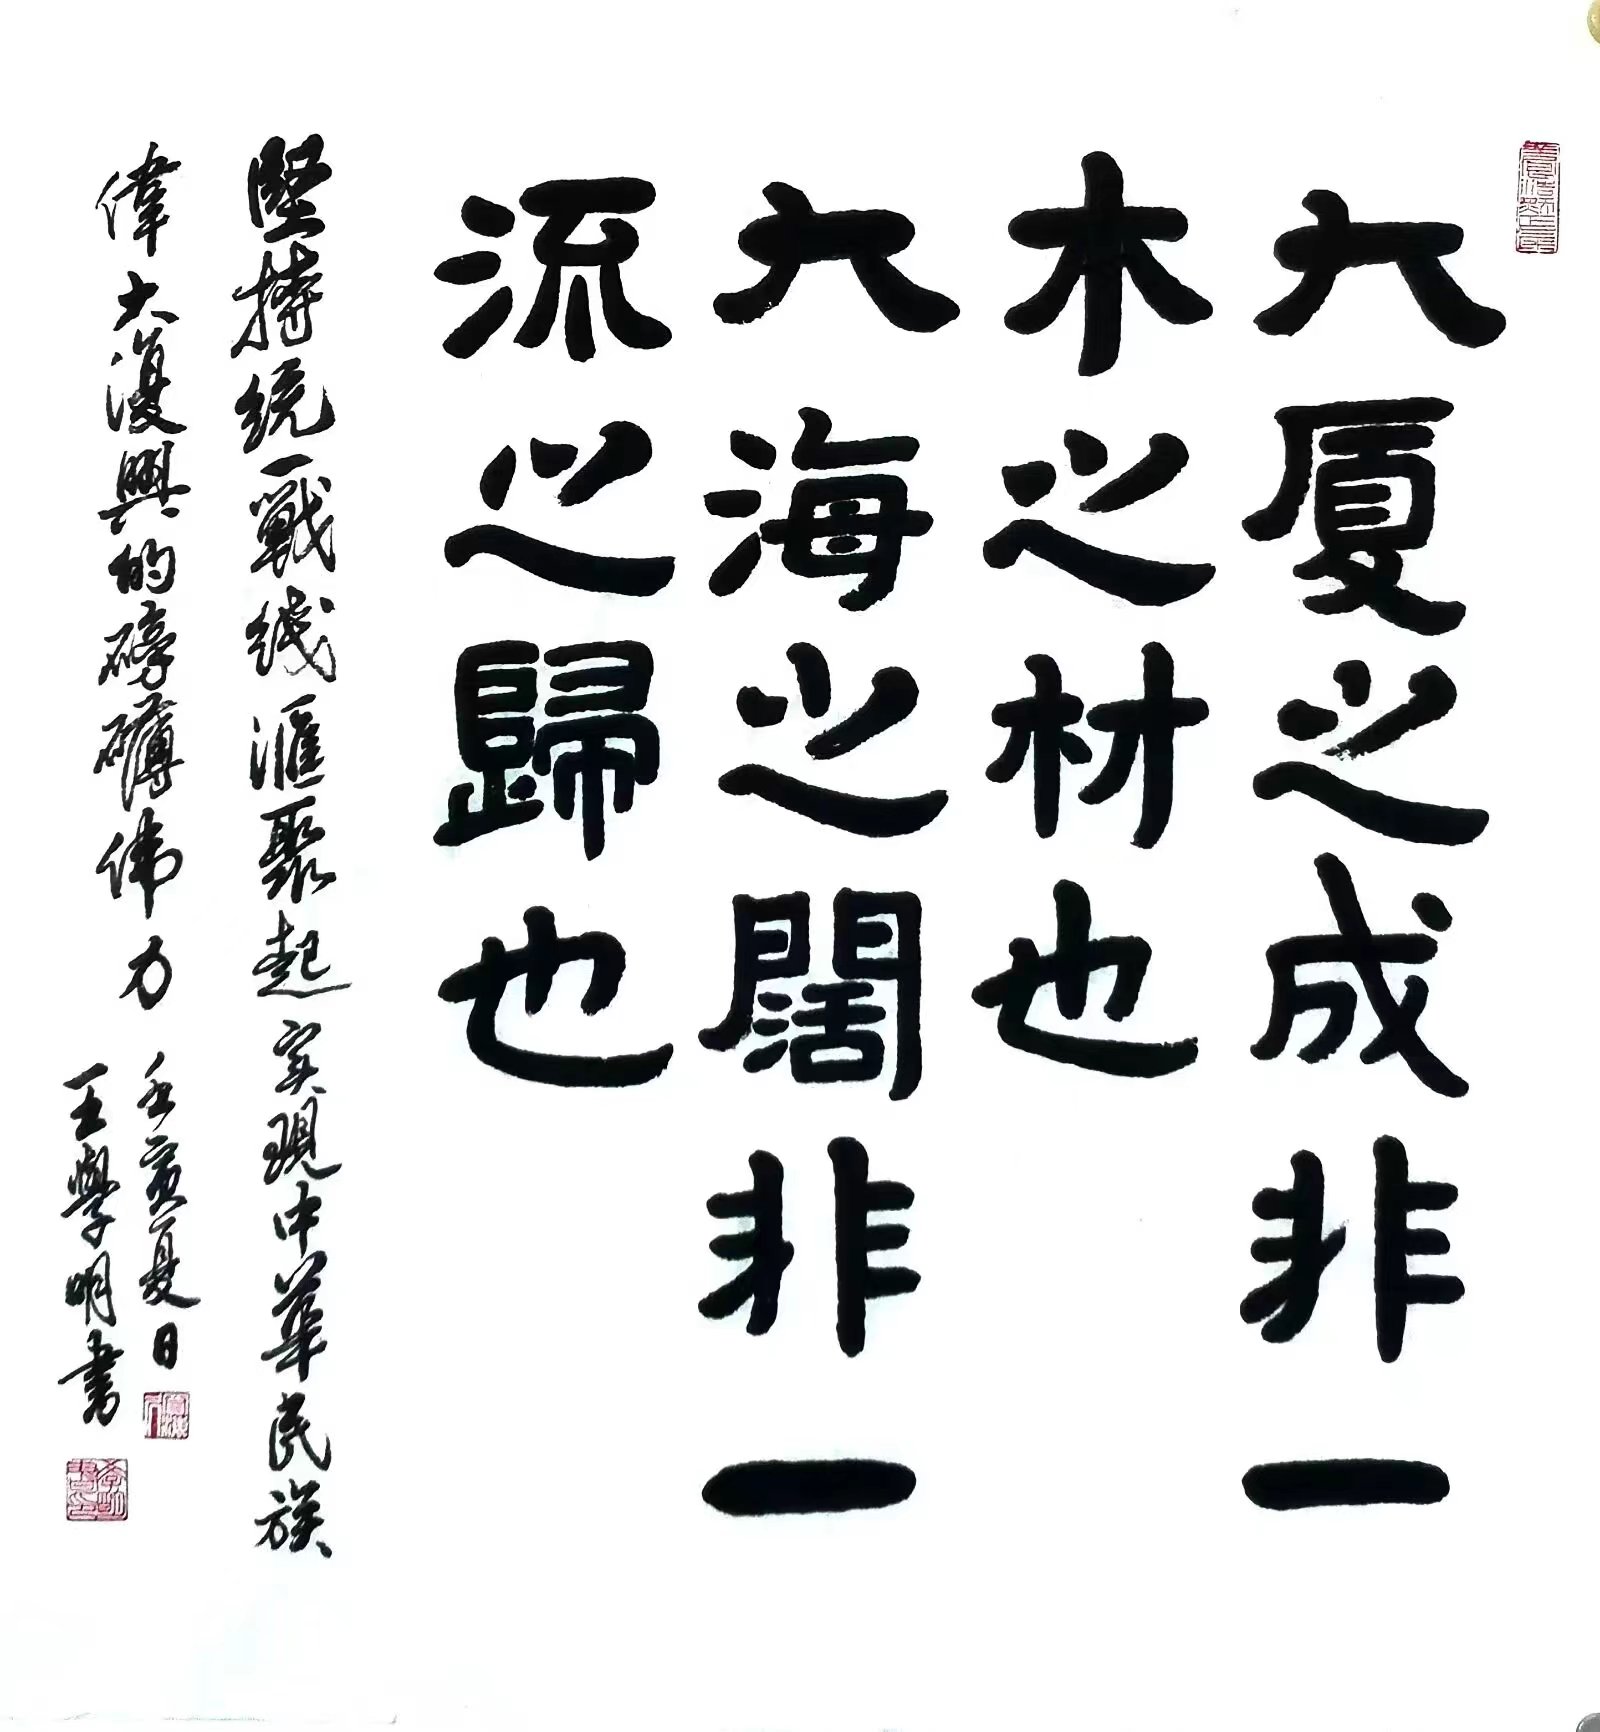 大厦之成非一
木之材也
大海之闊非一
流之歸也
堅持统一戰线滙聚起实現中華民族
偉大復興的磅礴伟力
壬寅夏日
王學明書